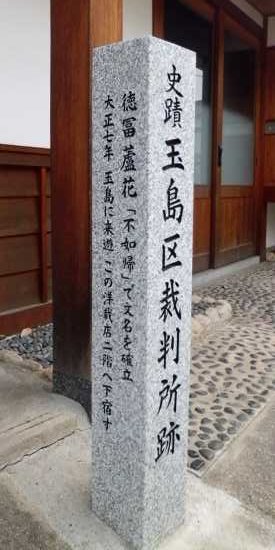 史蹟 玉島区裁判所跡
徳冨蘆花「不如帰」で文名を確立
大正七年 玉島に来遊 この洋裁店二階へ下宿す